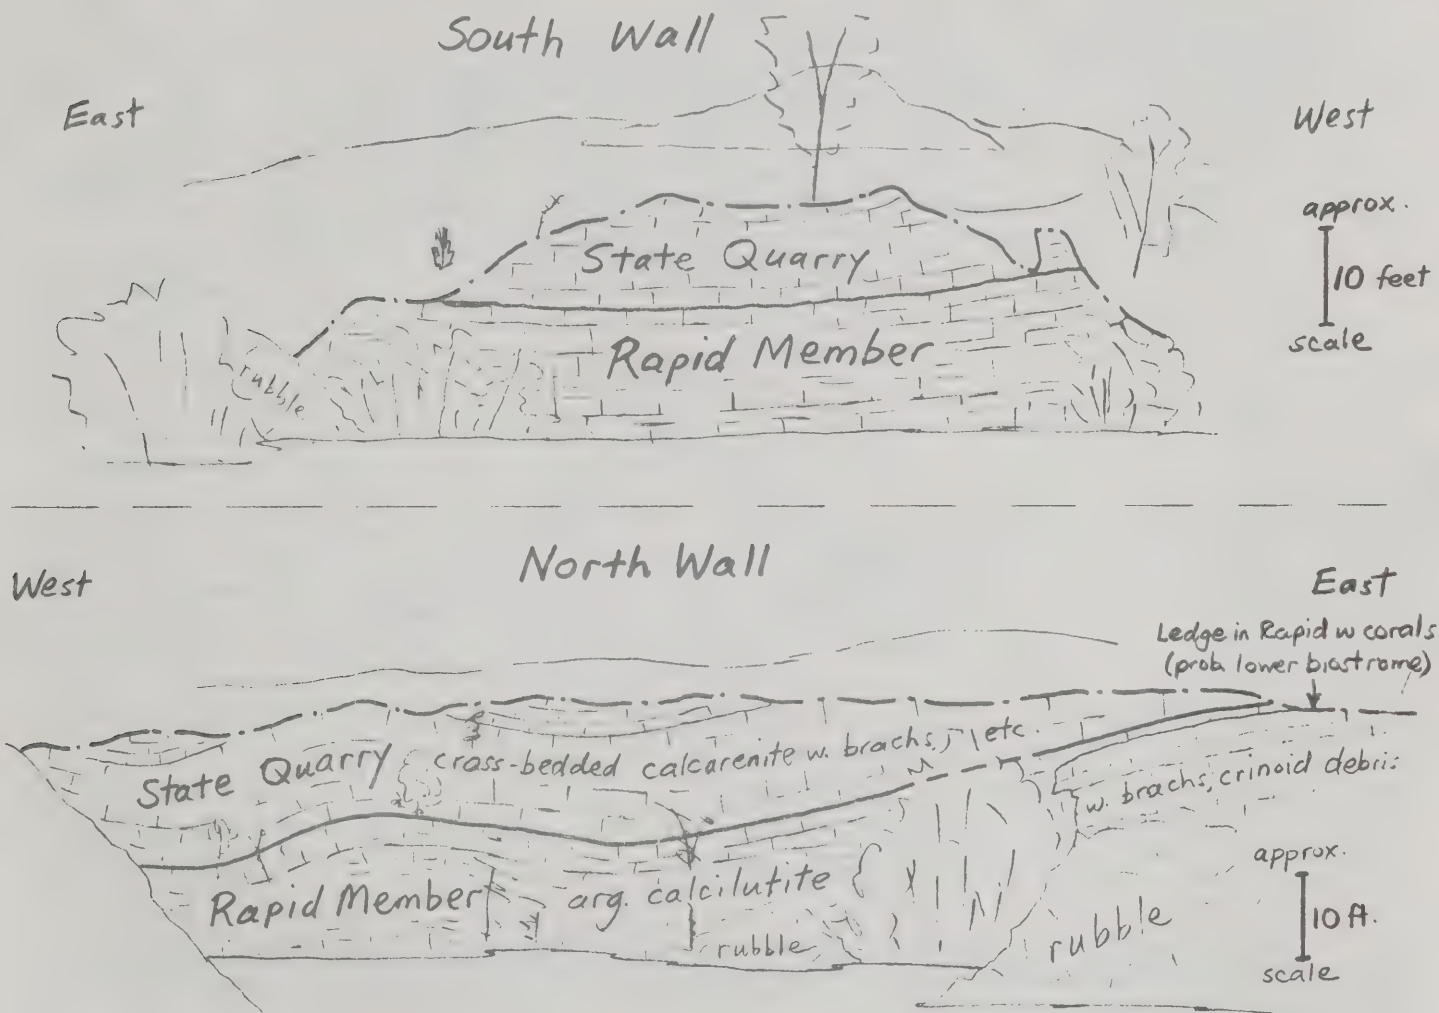 South Wall
East
West
approx.
10 feet
scale
State Quarry
Rapid Member
rubble
North Wall
West
East
Ledge in Rapid w corals
(prob. lower biostrome)
State Quarry
cross-bedded calcarenite w. brachs, etc.
w. brachs, crinoid debris
Rapid Member
arg. calcilutite
rubble
rubble
approx.
10 ft.
scale